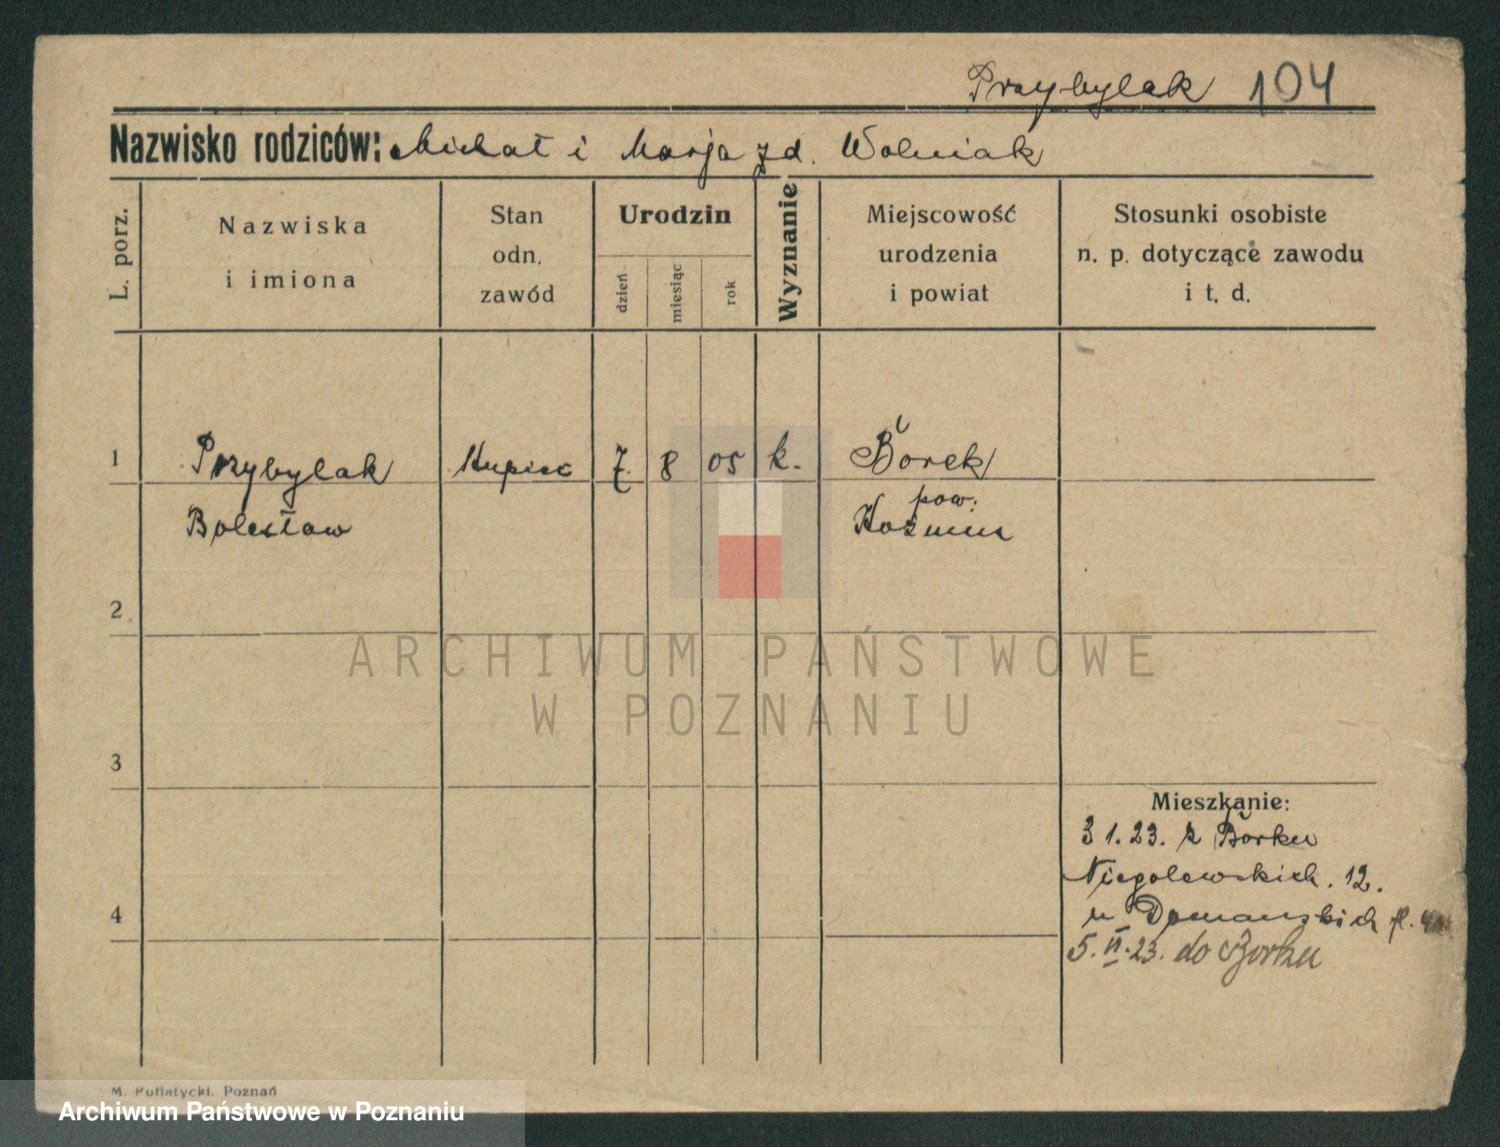 Przybylak 104
Nazwisko rodziców: Michał i Marja zd. Wolniak
L. porz.
Nazwiska
i imiona
Stan
odn.
zawód
Urodzin
dzień
miesiąc
rok
Wyznanie
Miejscowość
urodzenia
i powiat
Stosunki osobiste
n. p. dotyczące zawodu
i t. d.
1 Przybylak Kupiec 7. 8 05 k. Borek
pow.
Bolesław Koźmin
2
ARCHIWUM PAŃSTWOWE
W POZNANIU
3
Mieszkanie:
3 1. 23. z Borku
Niegolewskich. 12.
4
u Domańskich
5. VI. 23. do Borku
M. Putiatycki, Poznań
Archiwum Państwowe w Poznaniu